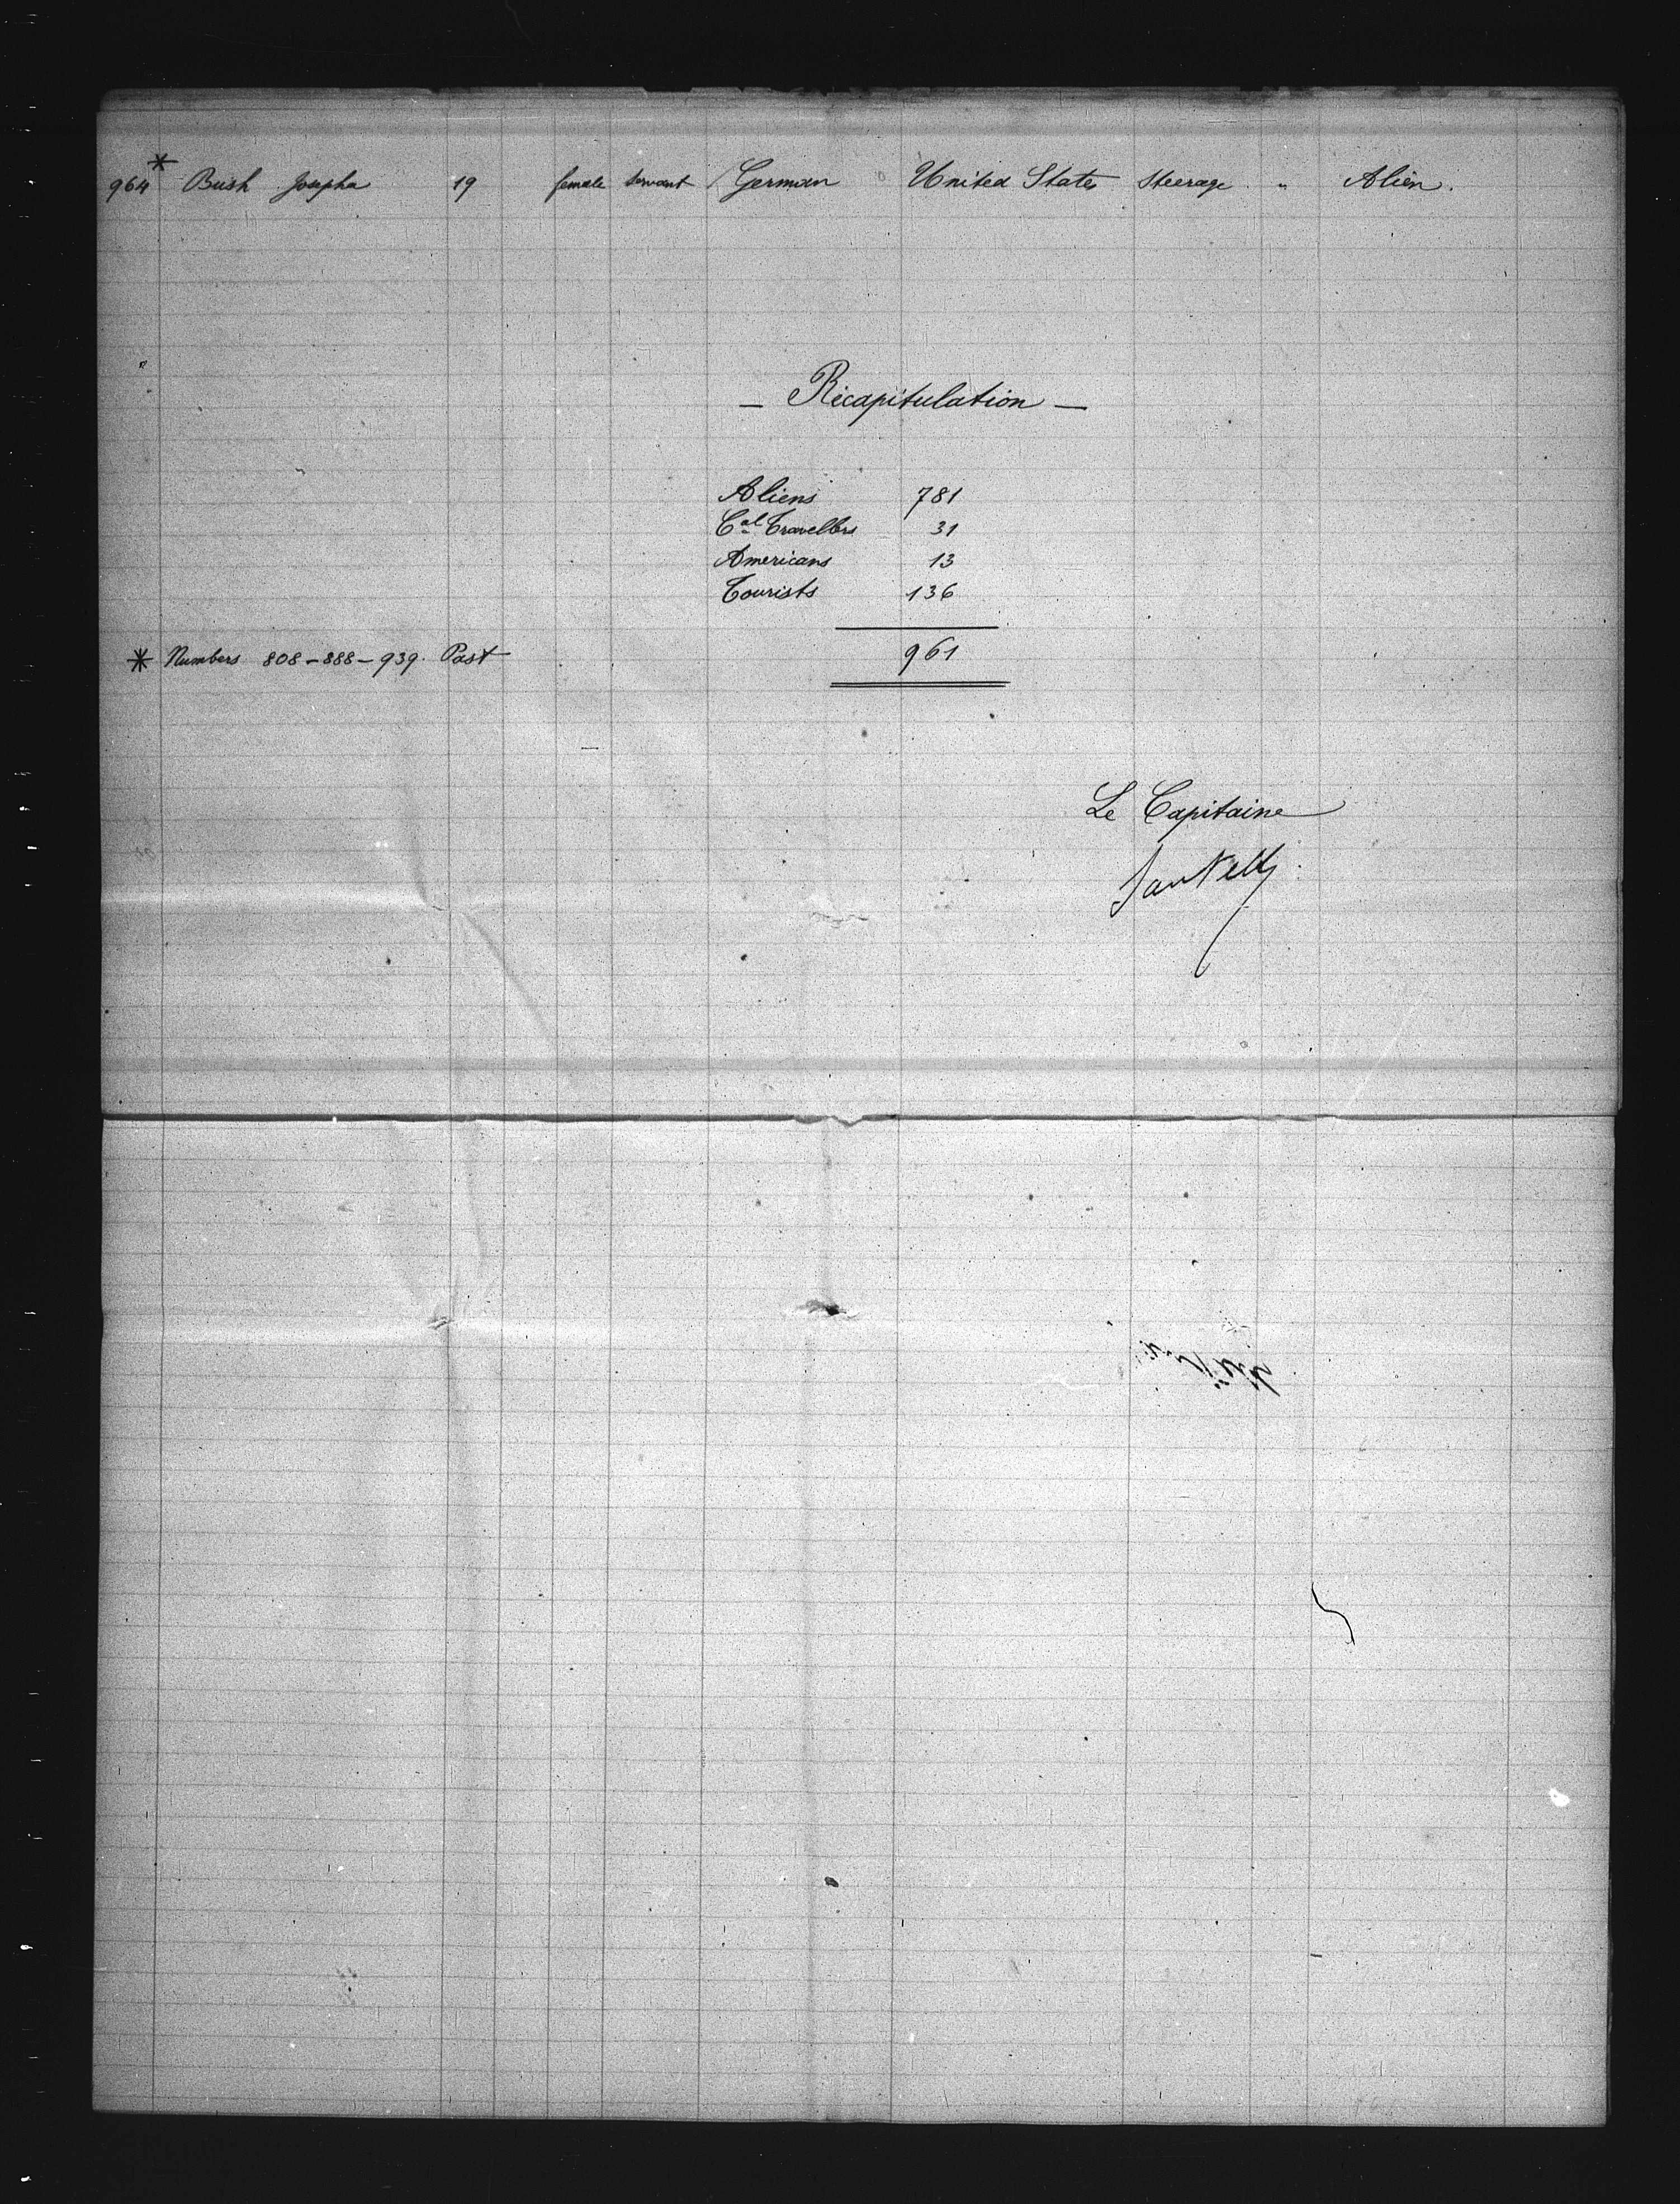 964* Bush Josepha 19 female servant German United States Steerage " Alien.
— Récapitulation —
Aliens 781
Cal Travellers 31
Americans 13
Tourists 136
961
* Numbers 808 - 888 - 939. Past
Le Capitaine